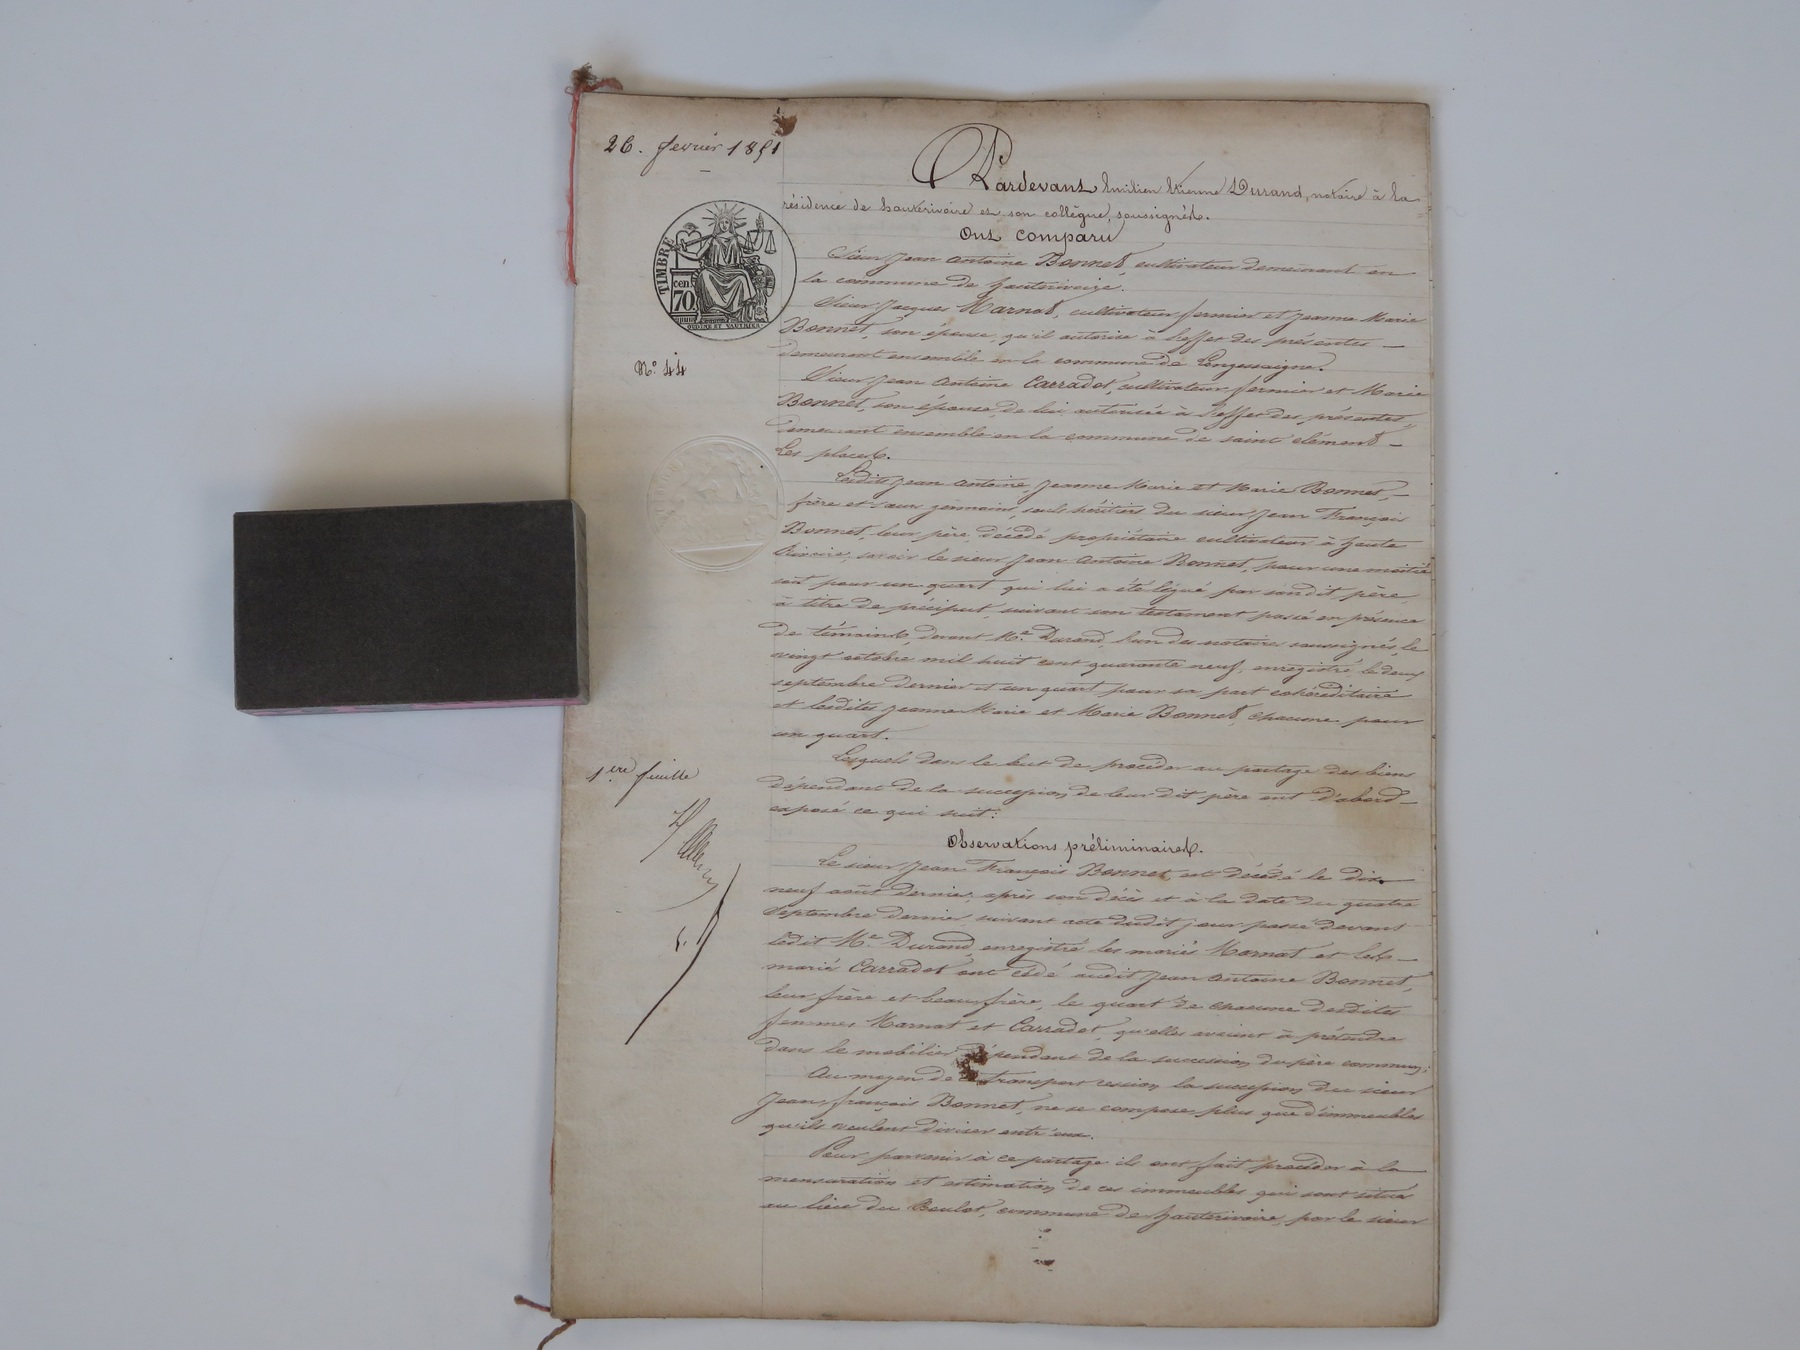 26. fevrier 1851
Pardevant Emilien Etienne Durand, notaire à la
résidence de hauterivoire et son collègue, soussignés.
Ont comparu
TIMBRE
cen
70
OUDINÉ ET VAUTHIER
Sieur Jean Antoine Bonnet, cultivateur demeurant en
la commune de hauterivoire.
Sieur Jacques Marnat, cultivateur fermier et Jeanne Marie
Bonnet, son épouse, qu'il autorise à l'effet des présentes
demeurant ensemble en la commune de Longessaigne.
N° 44
Sieur Jean Antoine Carradot, cultivateur fermier et Marie
Bonnet, son épouse, de lui autorisée à l'effet des présentes,
demeurant ensemble en la commune de saint clément
Les places.
Lesdits Jean Antoine, Jeanne Marie et Marie Bonnet,
frère et sœurs germains, seuls héritiers du sieur Jean François
Bonnet, leur père, décédé propriétaire cultivateur à haute
Rivoire, savoir le sieur Jean Antoine Bonnet, pour une moitié
soit pour un quart qui lui a été légué par sondit père,
à titre de préciput, suivant son testament passé en présence
de témoins, devant Me Durand, l'un des notaires soussignés, le
vingt octobre mil huit cent quarante neuf, enregistré le deux
septembre dernier et un quart pour sa part cohéréditaire
et lesdites Jeanne Marie et Marie Bonnet, chacune pour
un quart.
Lesquels dans le but de procéder au partage des biens
1ere feuille
dépendant de la succession de leur dit père ont d'abord
exposé ce qui suit:
Observations préliminaires.
Le sieur Jean François Bonnet, est décédé le dix
neuf août dernier, après son décès et à la date du quatre
septembre dernier, suivant acte dudit jour passé devant
ledit Me Durand, enregistré les mariés Marnat et les
mariés Carradot ont cédé audit Jean Antoine Bonnet,
leur frère et beau frère, le quart de chacune desdites
femmes Marnat et Carradot, qu'elles avaient à prétendre
dans le mobilier dépendant de la succession du père commun;
Au moyen de transport cession la succession du sieur
Jean françois Bonnet, ne se compose plus que d'immeubles
qu'ils veulent diviser entr'eux.
Pour parvenir à ce partage ils ont fait procéder à la
mensuration et estimation de ces immeubles qui sont situés
au lieu du Boulot, commune de hauterivoire, par le sieur